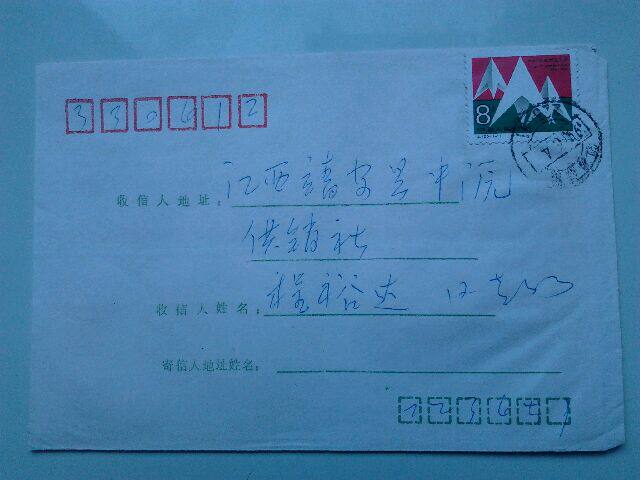 330612
8
收信人地址：江西靖安县中源
供销社
收信人姓名：程裕达 同志
寄信人地址姓名：